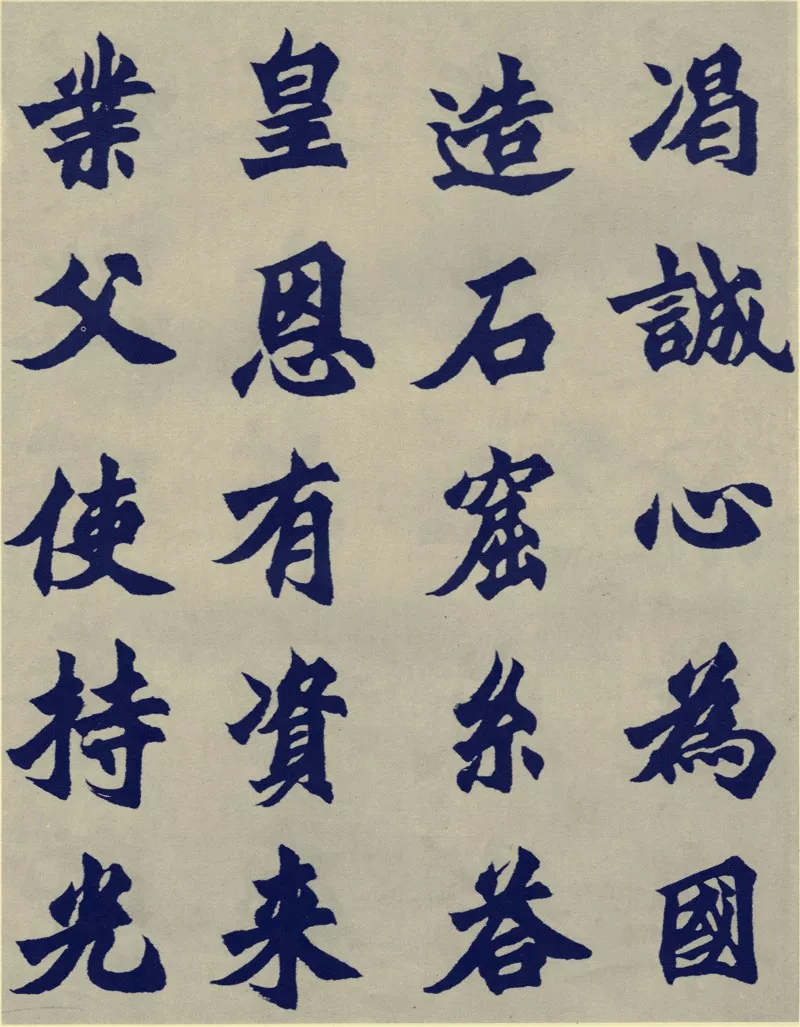 渴誠心為國
造石窟糸荅
皇恩有資来
業父使持光